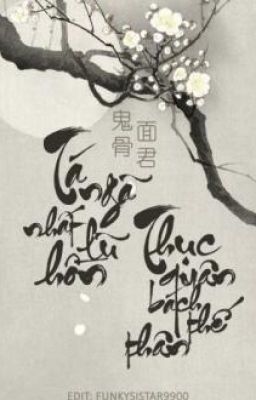 鬼骨
面君
Tá ngã
nhất lũ
hồn
Thục
quân
bách thế
thân
EDIT: FUNKYSISTAR9900